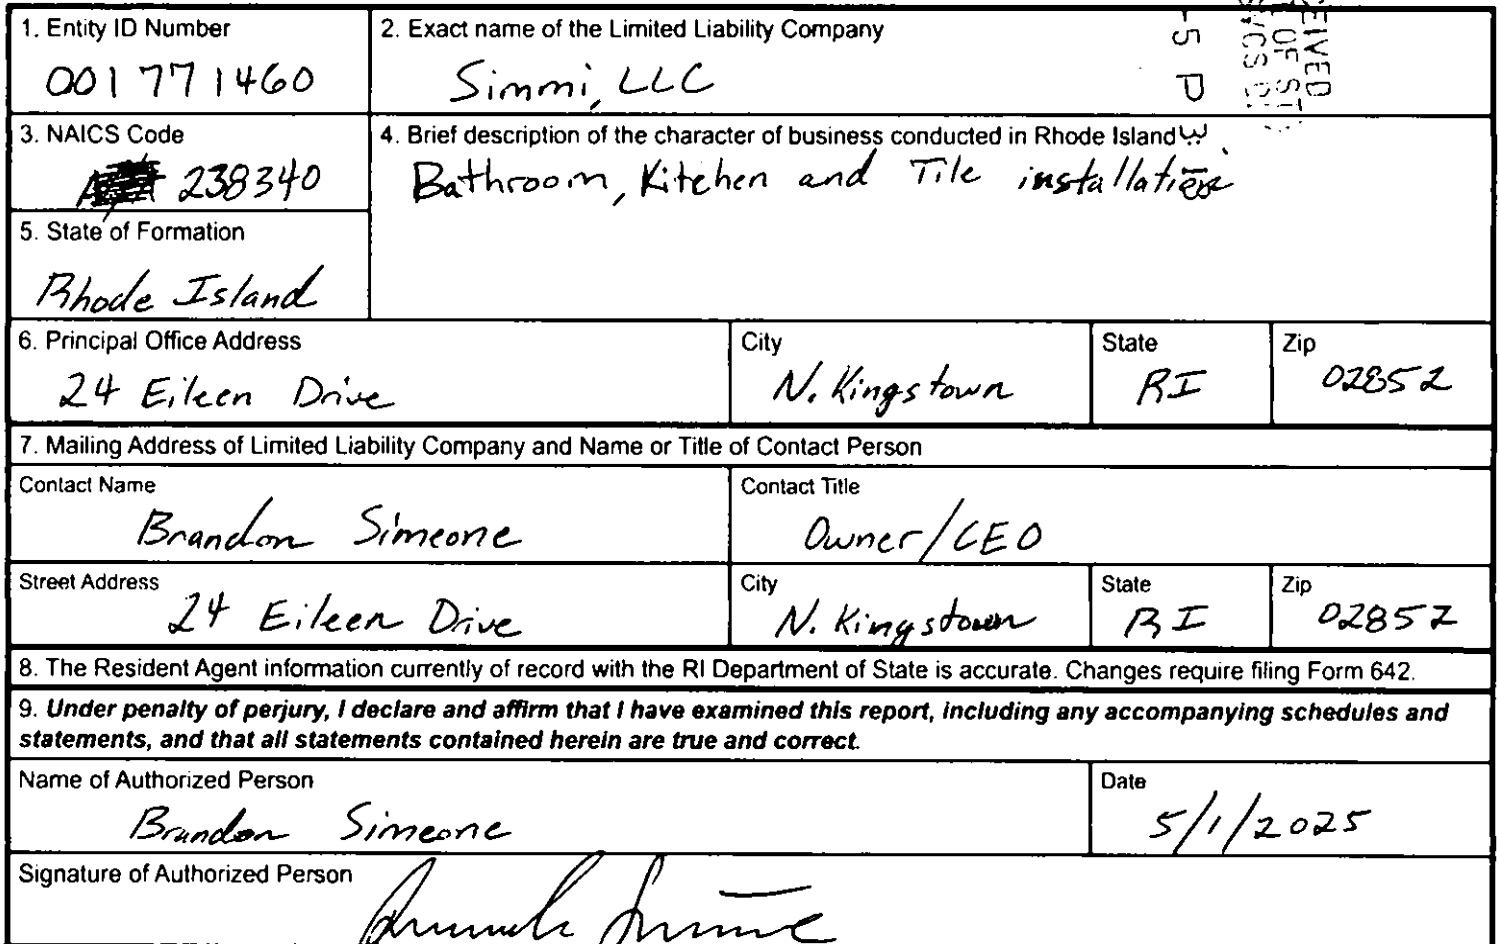 1. Entity ID Number
001771460
2. Exact name of the Limited Liability Company
Simmi, LLC
3. NAICS Code
238340
4. Brief description of the character of business conducted in Rhode Island
Bathroom, Kitchen and Tile installation
5. State of Formation
Rhode Island
6. Principal Office Address
24 Eileen Drive
City
N. Kingstown
State
RI
Zip
02852
7. Mailing Address of Limited Liability Company and Name or Title of Contact Person
Contact Name
Brandon Simeone
Contact Title
Owner/CEO
Street Address
24 Eileen Drive
City
N. Kingstown
State
RI
Zip
02852
8. The Resident Agent information currently of record with the RI Department of State is accurate. Changes require filing Form 642.
9. Under penalty of perjury, I declare and affirm that I have examined this report, including any accompanying schedules and
statements, and that all statements contained herein are true and correct.
Name of Authorized Person
Brandon Simeone
Date
5/1/2025
Signature of Authorized Person